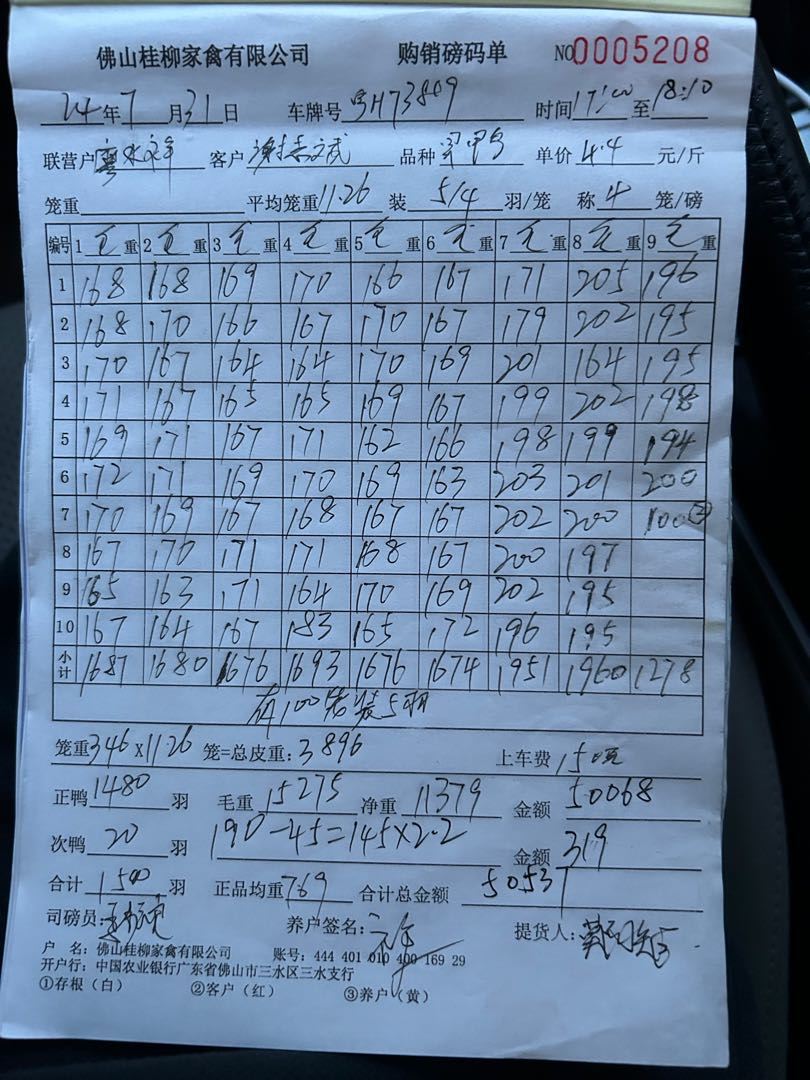 佛山桂柳家禽有限公司 购销磅码单 NO0005208
24年7月31日 车牌号粤H73889 时间17:00至18:10
联营户 客户谢 品种 单价4.4元/斤
笼重 平均笼重11.26 装5/4羽/笼 称4笼/磅
编号 1毛重 2毛重 3毛重 4毛重 5毛重 6毛重 7毛重 8毛重 9毛重
1 168 168 169 170 166 167 171 205 196
2 168 170 166 167 170 167 179 202 195
3 170 167 164 164 170 169 201 164 195
4 171 167 165 165 169 167 199 202 198
5 169 171 167 171 162 166 198 199 194
6 172 171 169 170 169 163 203 201 200
7 170 169 167 168 167 167 202 200 100②
8 167 170 171 171 168 167 200 197
9 165 163 171 164 170 169 202 195
10 167 164 167 183 165 172 196 195
小计 1687 1680 1676 1693 1676 1674 1951 1960 1278
有100笼装5羽
笼重346×11.26笼=总皮重:3896 上车费150项
正鸭1480羽 毛重15275 净重11379 金额50068
次鸭20羽 190-45=145×2.2 金额319
合计1500羽 正品均重7.69 合计总金额50537
司磅员: 养户签名: 提货人:
户 名:佛山桂柳家禽有限公司 账号:444 401 010 400 169 29
开户行:中国农业银行广东省佛山市三水区三水支行
①存根(白) ②客户(红) ③养户(黄)